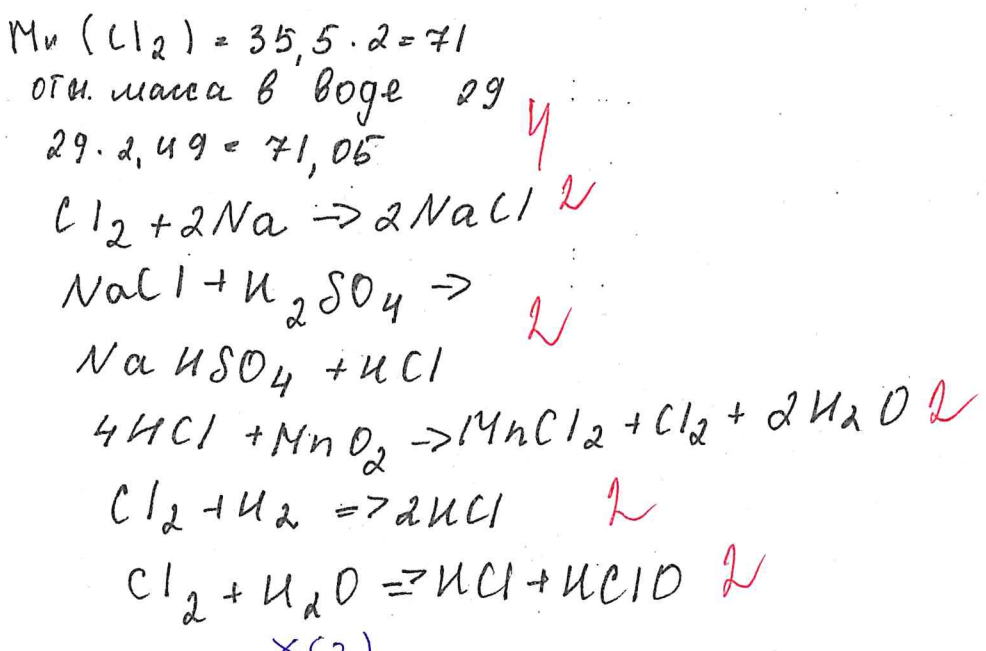 Mr (Cl2) = 35,5 · 2 = 71
отн. масса в воде 29
29 · 2,49 = 71,05 4
Cl2 + 2Na → 2NaCl 2
NaCl + H2SO4 →
NaHSO4 + HCl 2
4HCl + MnO2 → MnCl2 + Cl2 + 2H2O 2
Cl2 + H2 => 2HCl 2
Cl2 + H2O => HCl + HClO 2